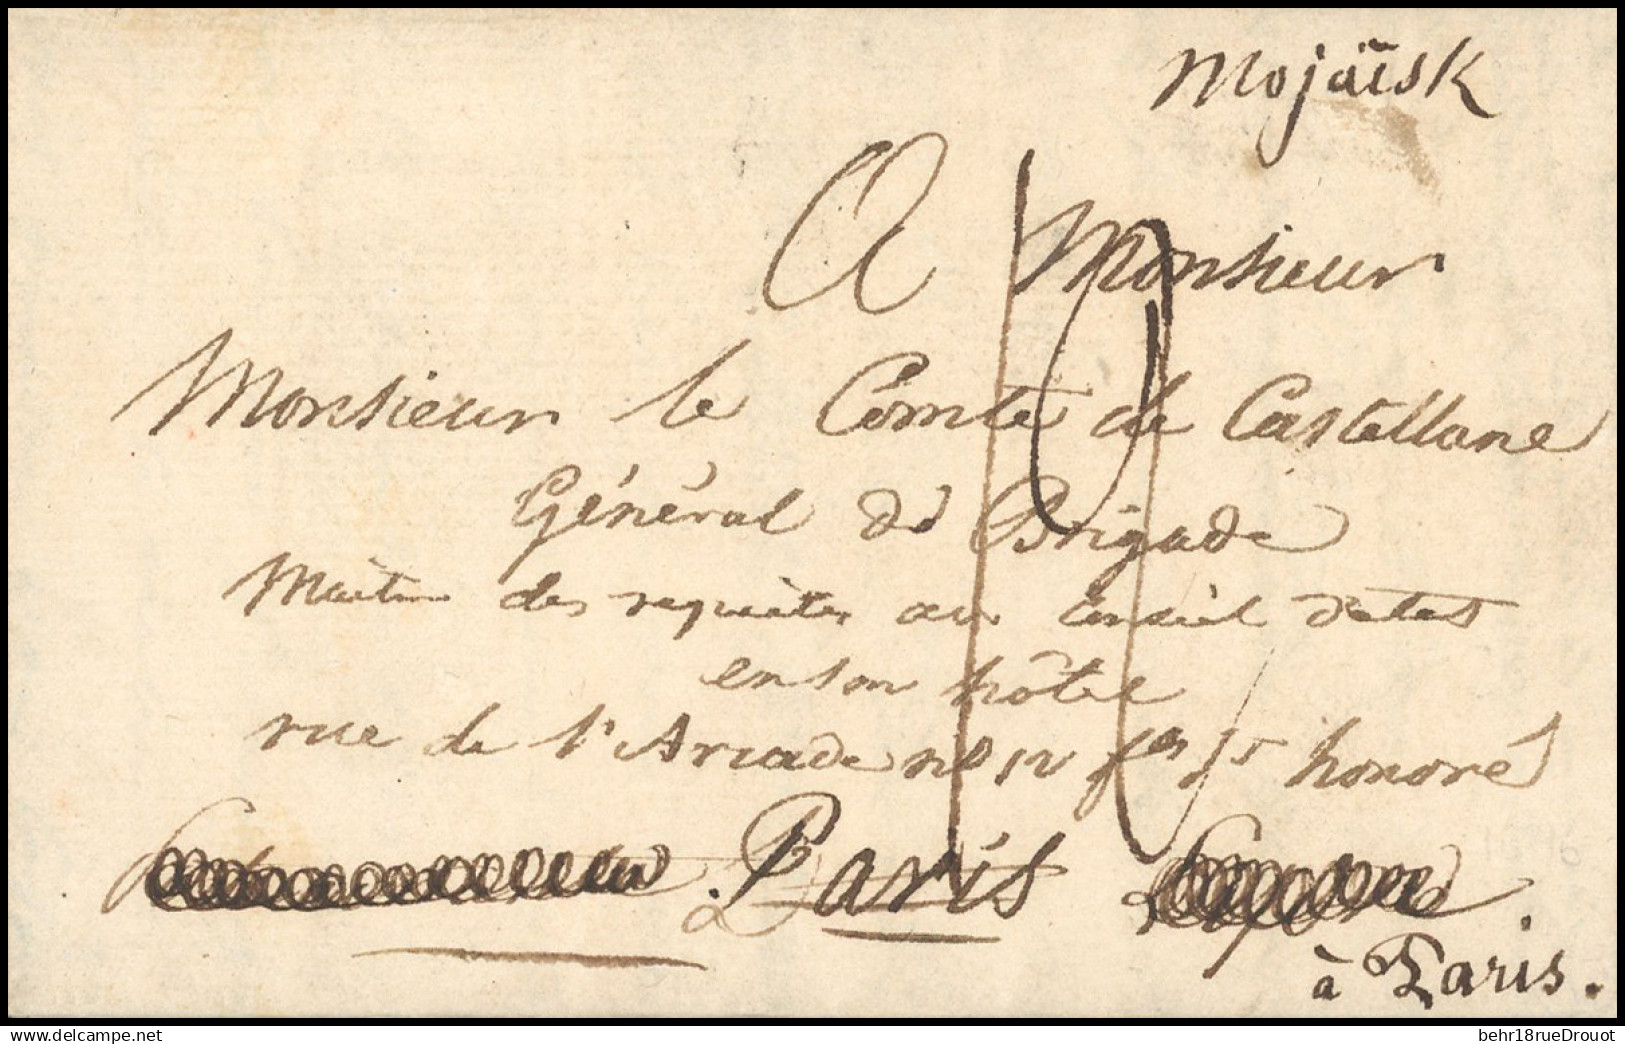 Mojaïsk
A Monsieur
Monsieur le Comte de Castellane
Général de Brigade
Maitre des requêtes au Conseil d'etat
en son hôtel
rue de l'Arcade no 12 fg St honoré
Paris
à Paris.
delcampe.net
behr18rueDrouot